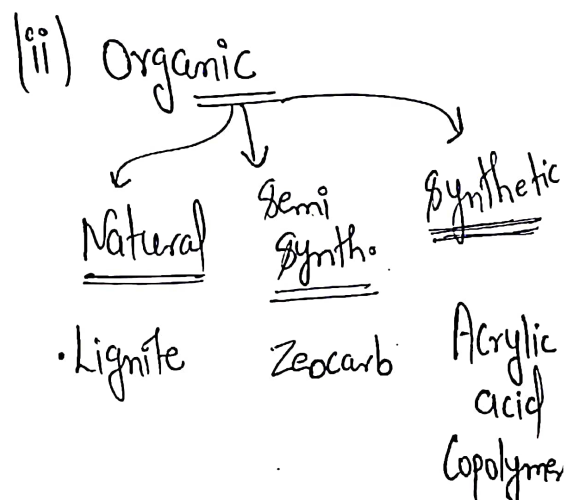 (ii) Organic
Natural
Semi
Synth.
Synthetic
• Lignite
Zeocarb
Acrylic
acid
Copolymer